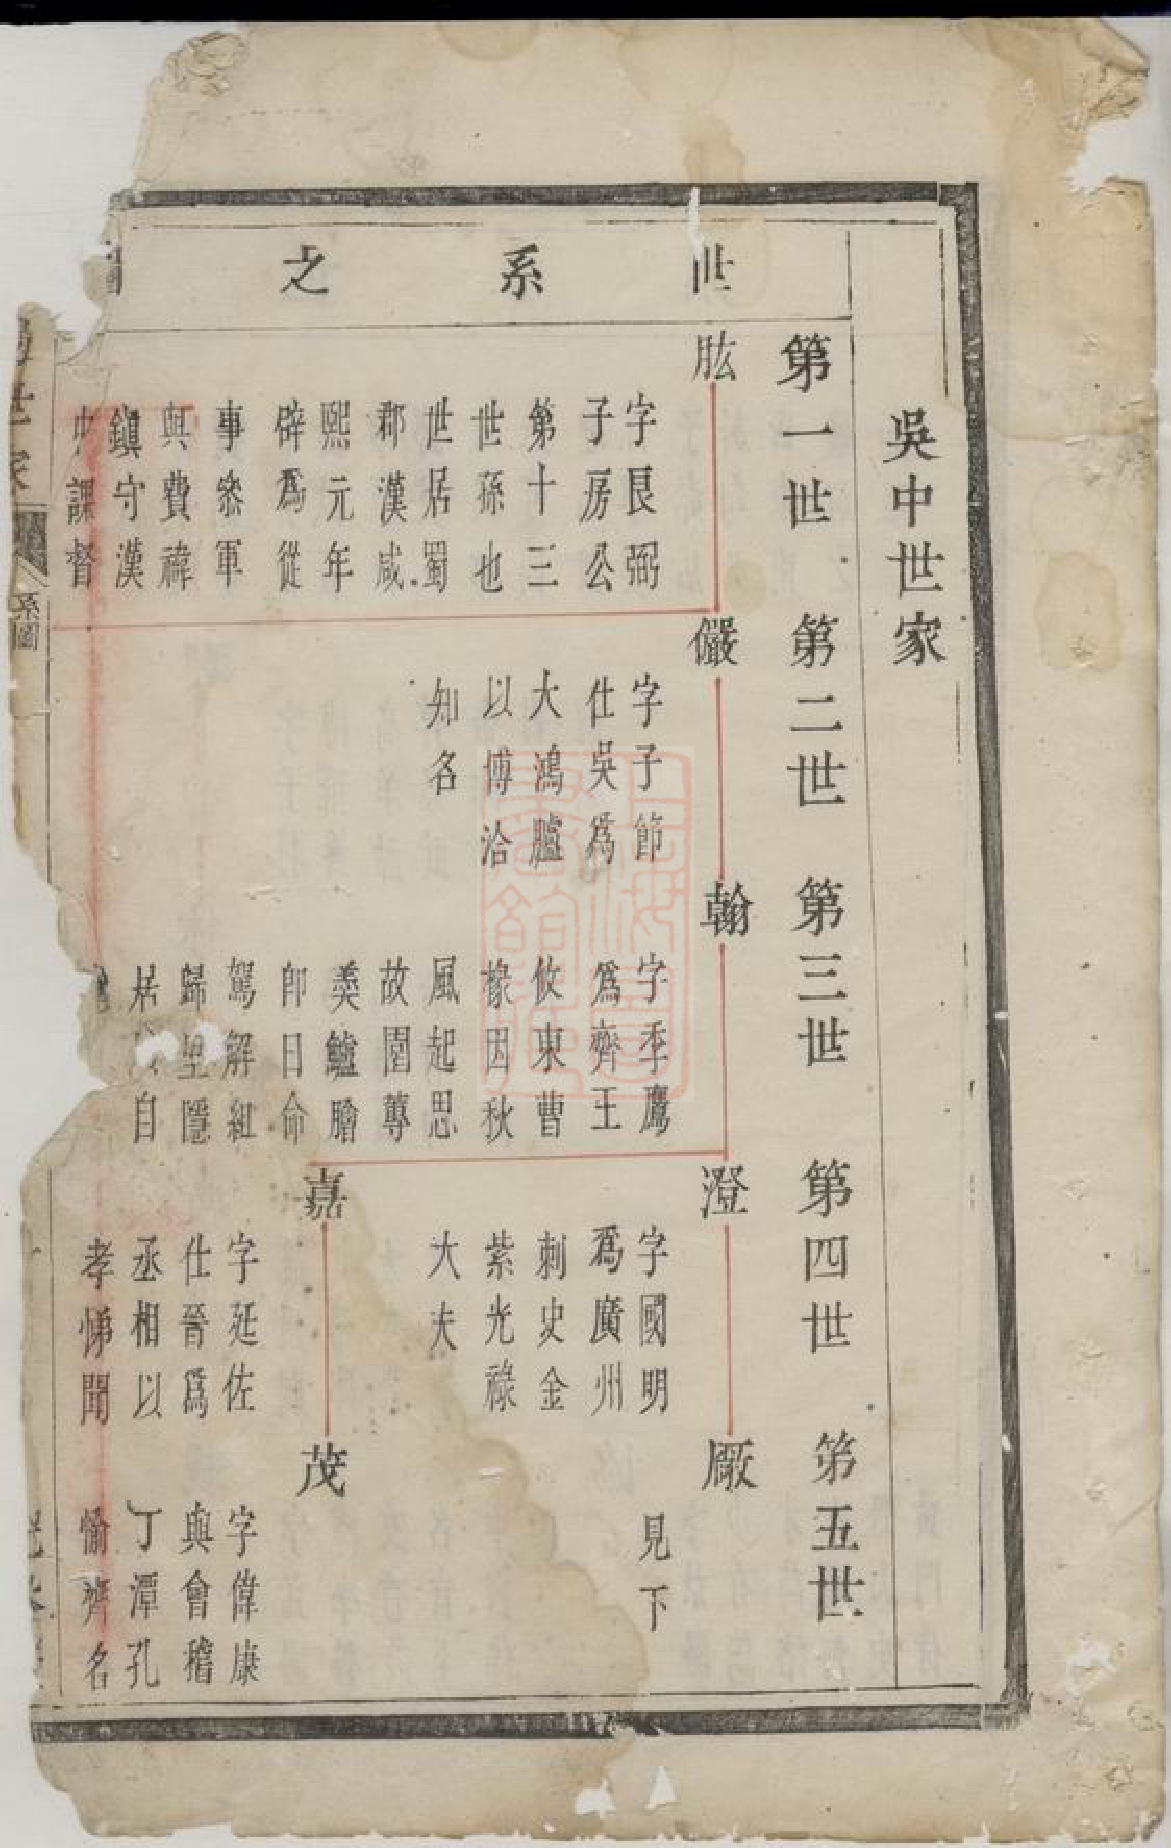 吳中世家
世系之
第一世
第二世
第三世
第四世
第五世
肱
字艮弼
子房公
第十三
世孫也
世居蜀
郡漢咸
熙元年
辟爲從
事叅軍
與費禕
鎮守漢
中課督
儼
字子節
仕吳爲
大鴻臚
以博洽
知名
翰
字季鷹
爲齊王
攸東曹
椽因秋
風起思
故園蓴
羹鱸膾
卽日命
駕解組
歸里隱
居自
澄
字國明
爲廣州
刺史金
紫光祿
大夫
嘉
字延佐
仕晉爲
丞相以
孝悌聞
厰
見下
茂
字偉康
與會稽
丁潭孔
愉齊名
世家
系圖
上海圖書館藏